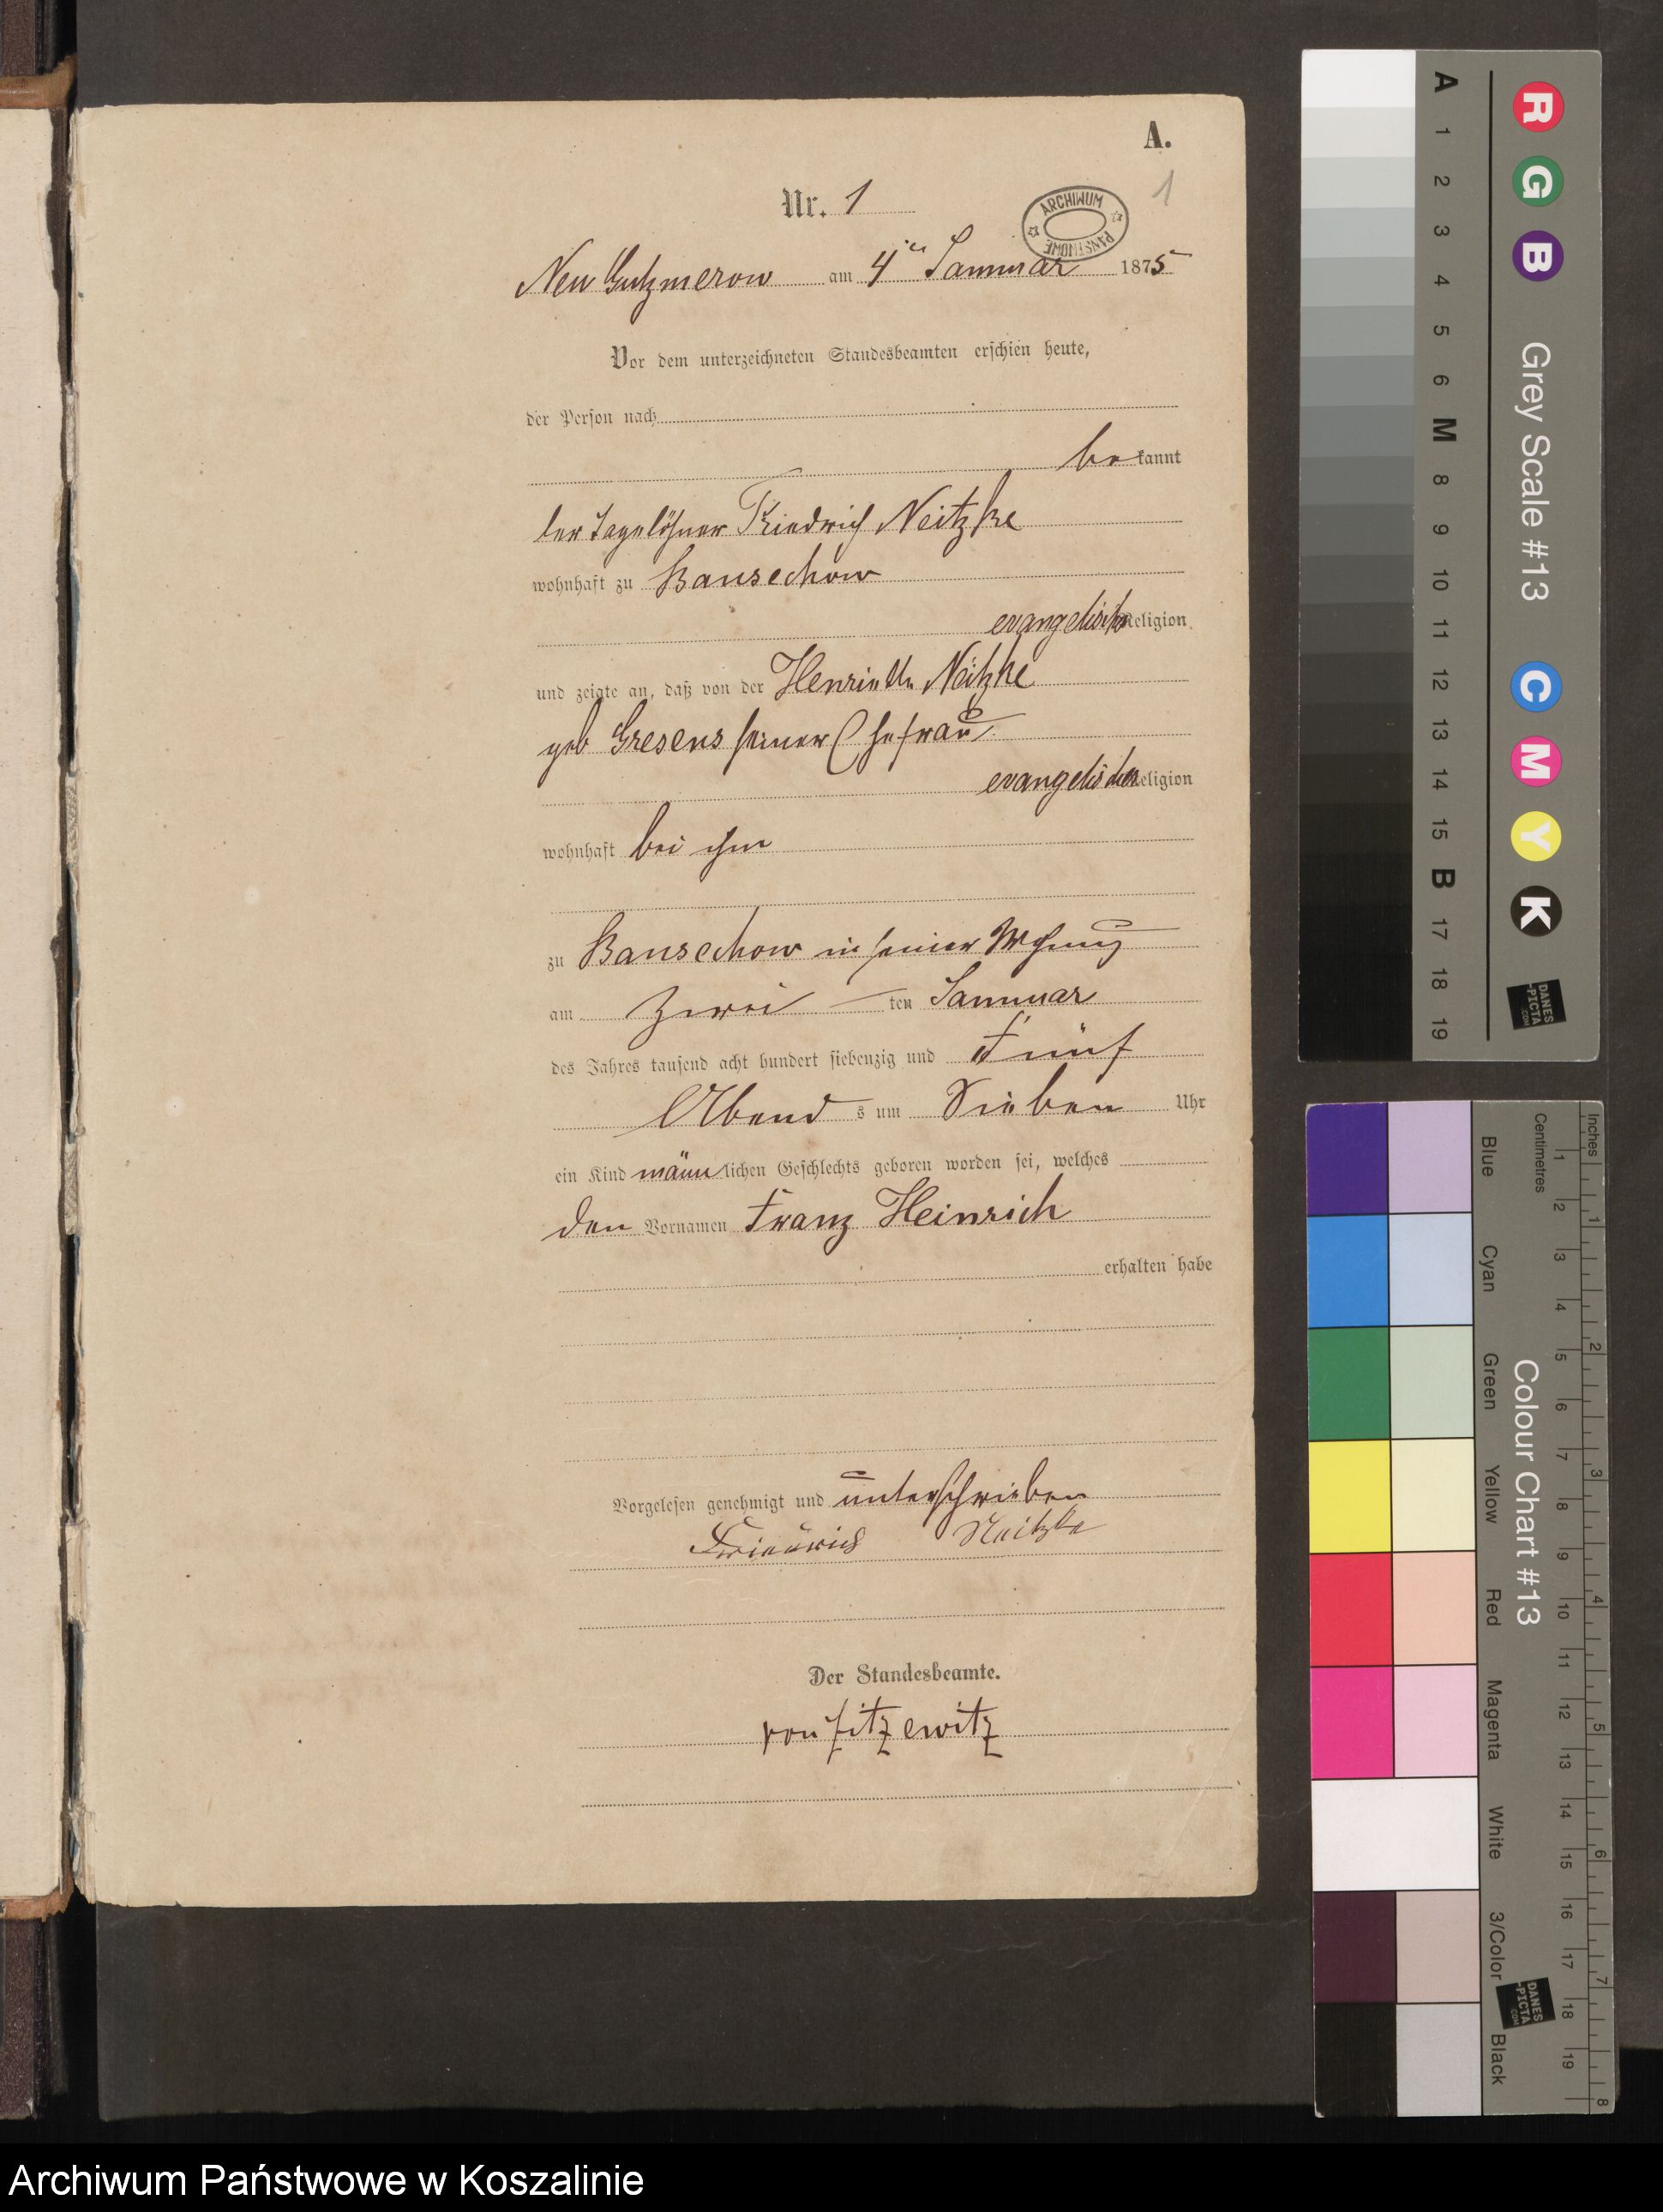 A.
Nr. 1
1
ARCHIWUM PAŃSTWOWE
Neu Gutzmerow am 4ten Januar 1875
Vor dem unterzeichneten Standesbeamten erschien heute,
der Person nach
bekannt
der Tagelöhner Friedrich Neitzke
wohnhaft zu Bansechow
evangelischer Religion
und zeigte an, daß von der Henriette Neitzke
geb Gresens seiner Ehefrau
evangelischer Religion
wohnhaft bei ihm
zu Bansechow in seiner Wohnung
am zwei ten Januar
des Jahres tausend acht hundert siebenzig und Fünf
Abend s um Sieben Uhr
ein Kind männlichen Geschlechts geboren worden sei, welches
den Vornamen Franz Heinrich
erhalten habe
Vorgelesen genehmigt und unterschrieben
Friedrich Neitzke
Der Standesbeamte.
von Zitzewitz
R G B Grey Scale #13 C M Y K
A 1 2 3 4 5 6 M 8 9 10 11 12 13 14 15 B 17 18 19
DANES-PICTA.COM
Colour Chart #13
Blue Cyan Green Yellow Red Magenta White 3/Color Black
Centimetres 1 2 3 4 5 6 7 8 9 10 11 12 13 14 15 16 17 18 19
Inches 1 2 3 4 5 6 7 8
DANES-PICTA.COM
Archiwum Państwowe w Koszalinie